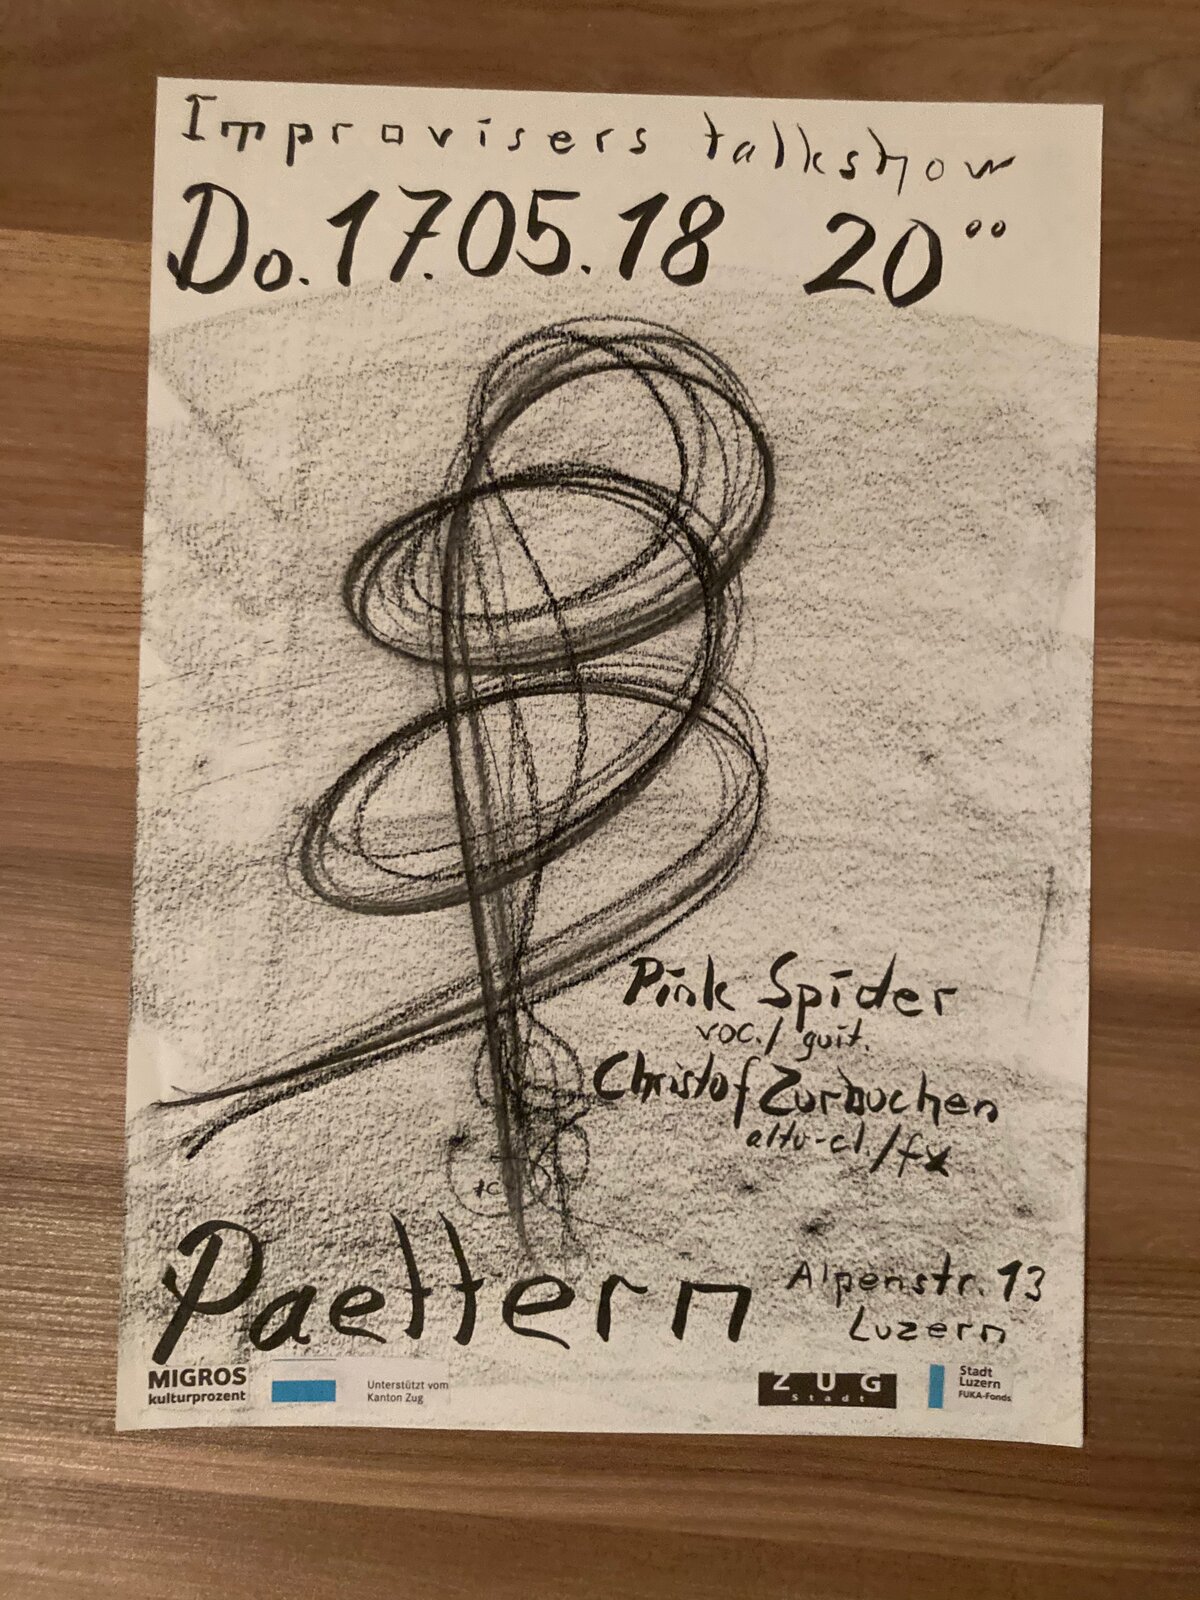 Improvisers talkshow
Do. 17.05.18 20°°
Pink Spider
voc./ guit.
Christof Zurbuchen
alto-cl./fx
Paettern
Alpenstr. 13
Luzern
MIGROS
kulturprozent
Unterstützt vom
Kanton Zug
ZUG
Stadt
Stadt
Luzern
FUKA-Fonds